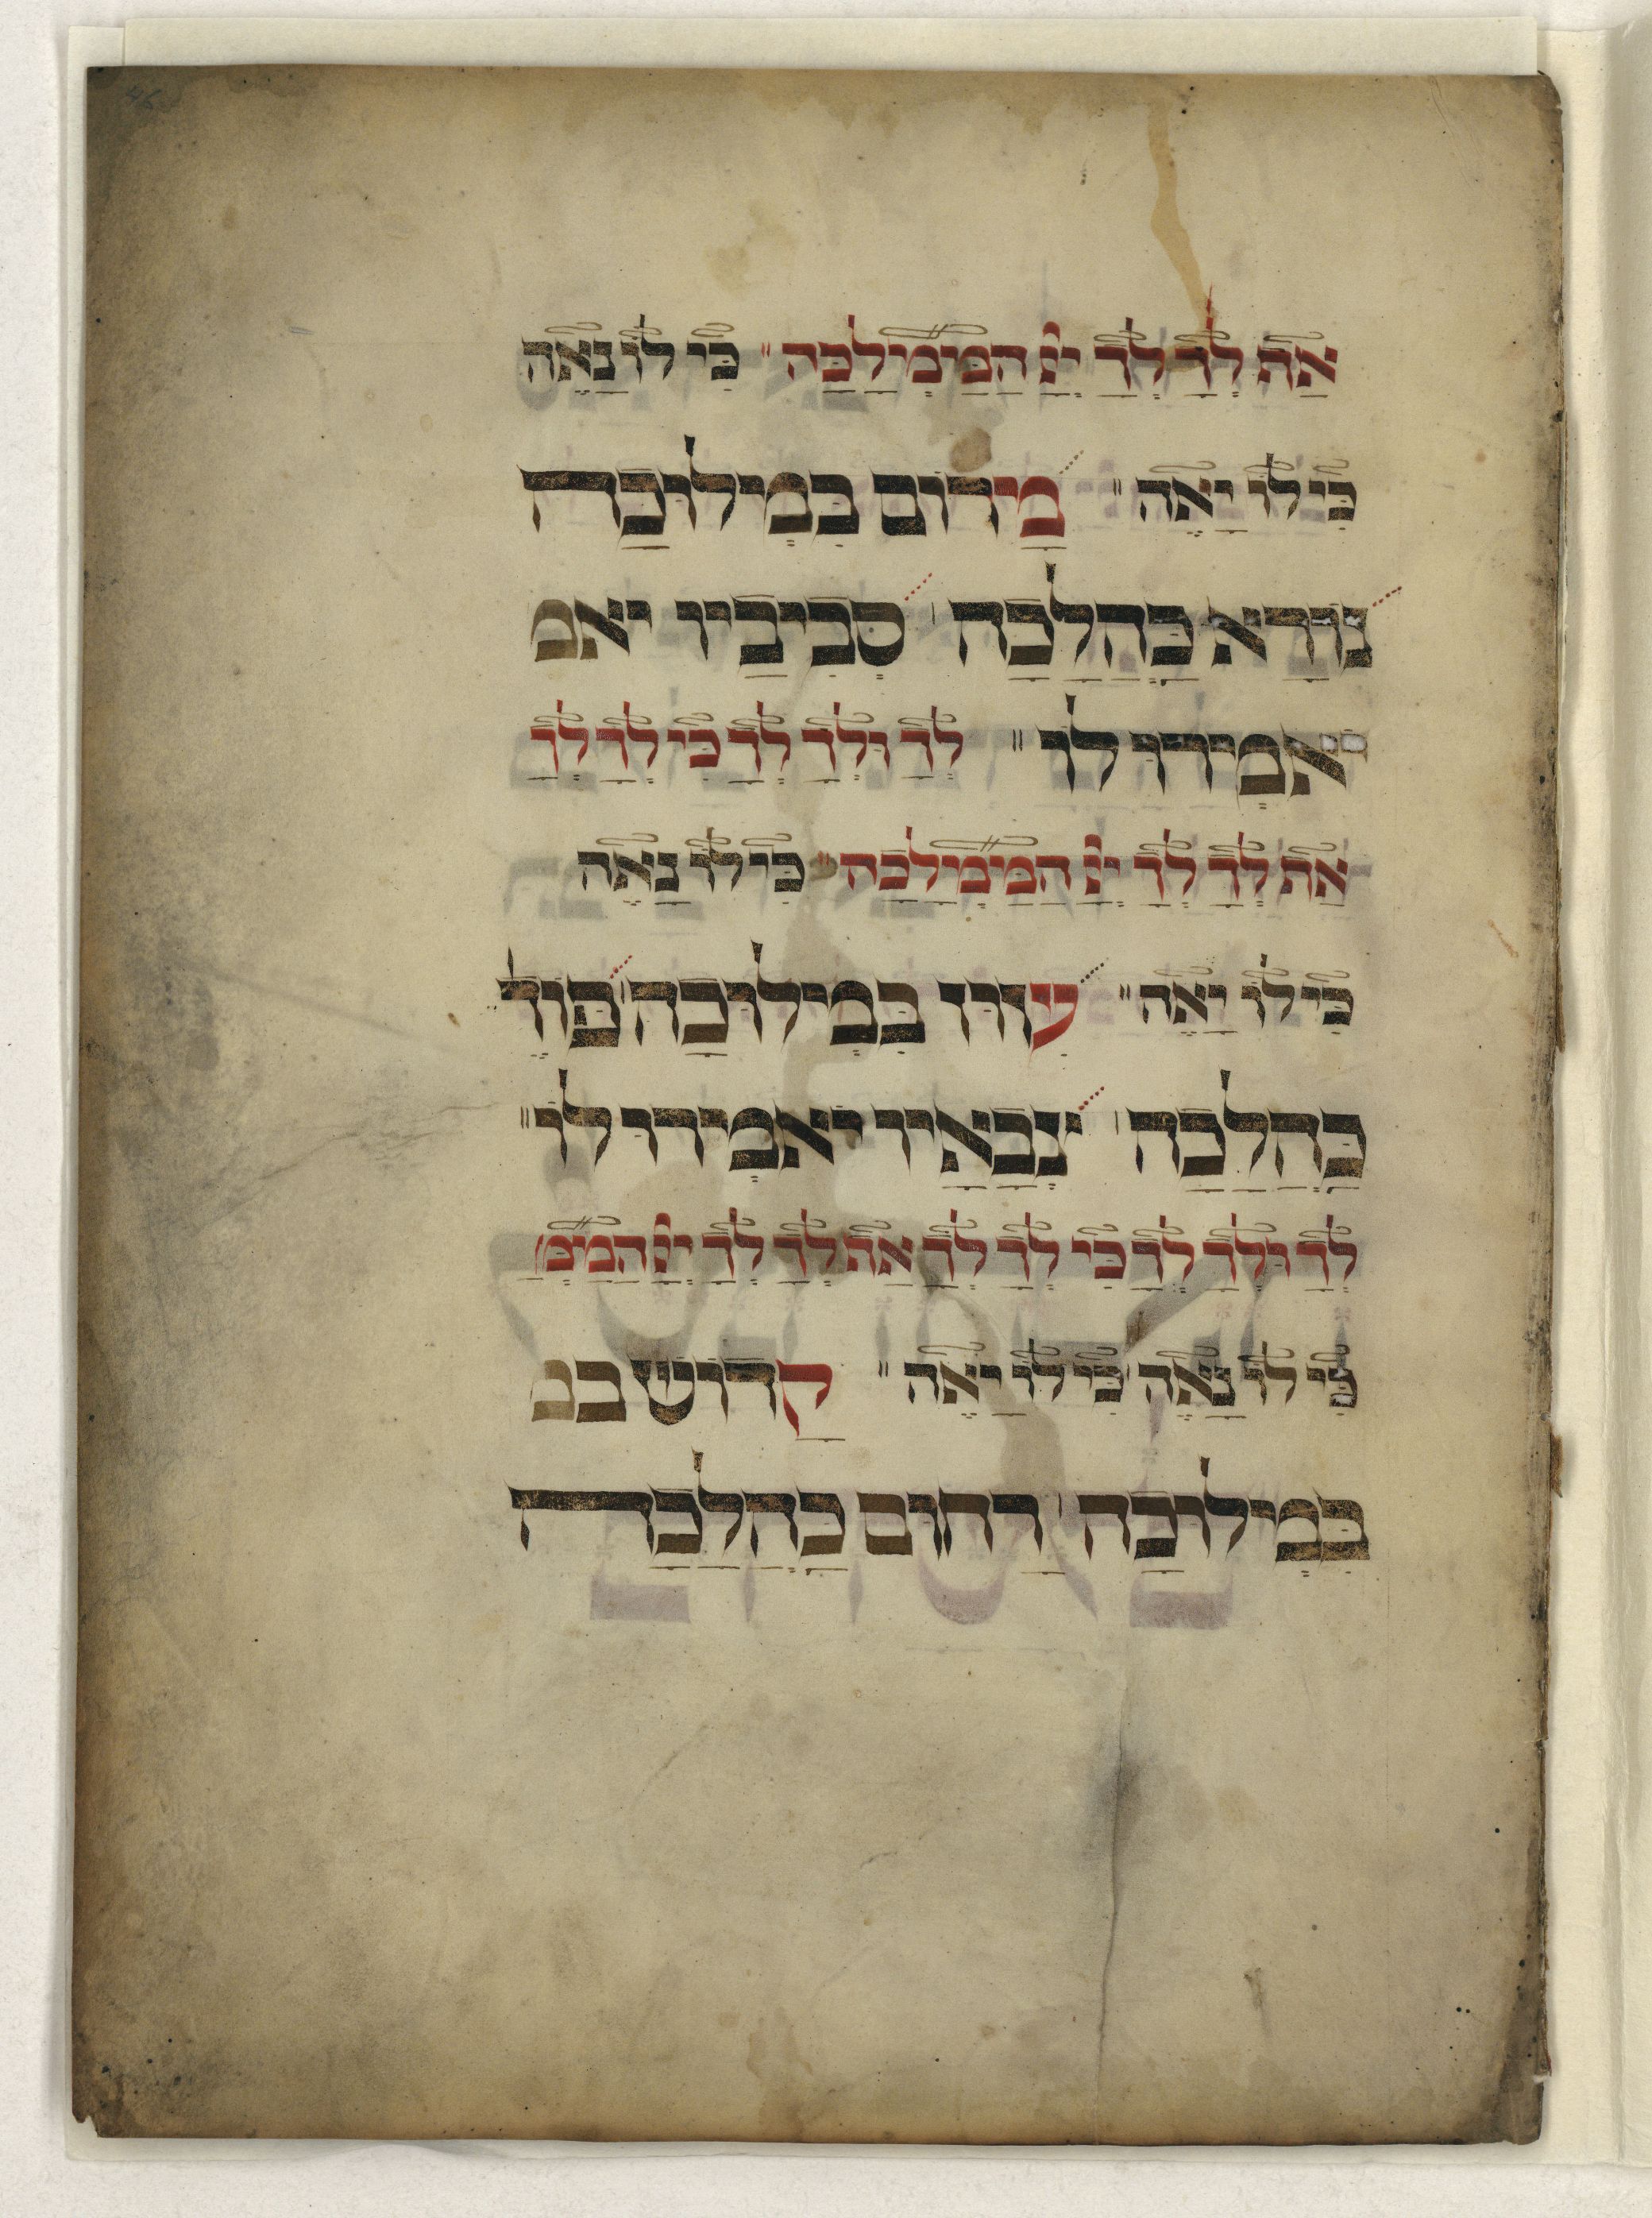 אַף לְךָ לְךָ יְיָ הַמַּמְלָכָה״ כִּי לוֹ נָאֶה
כִּי לוֹ יָאֶה״ מָרוֹם בִּמְילוּכָה
נוֹרָא כַּהֲלָכָה׳ סְבִיבָיו יאמ
יאמְירוּ לוֹ״ לְךָ וּלְךָ לְךָ כִּי לְךָ לְךָ
אַף לְךָ לְךָ יְיָ הַמַּמְילָכָה״ כִּי לוֹ נָאֶה
כִּי לוֹ יָאֶה״ עִזּוּז בִּמְילוּכָה׳ פּוֹדֶ
כַּהֲלָכָה׳ צְבָאָיו יֹאמְירוּ לוֹ״
לְךָ וּלְךָ לְךָ כִּי לְךָ לְךָ אַף לְךָ לְךָ יְיָ הַמַּמְ
כִּי לוֹ נָאֶה׳ כִּי לוֹ יָאֶה״ קָדוֹשׁ בבמ
בִּמְילוּכָה׳ רַחוּם כַּהֲלָכָה